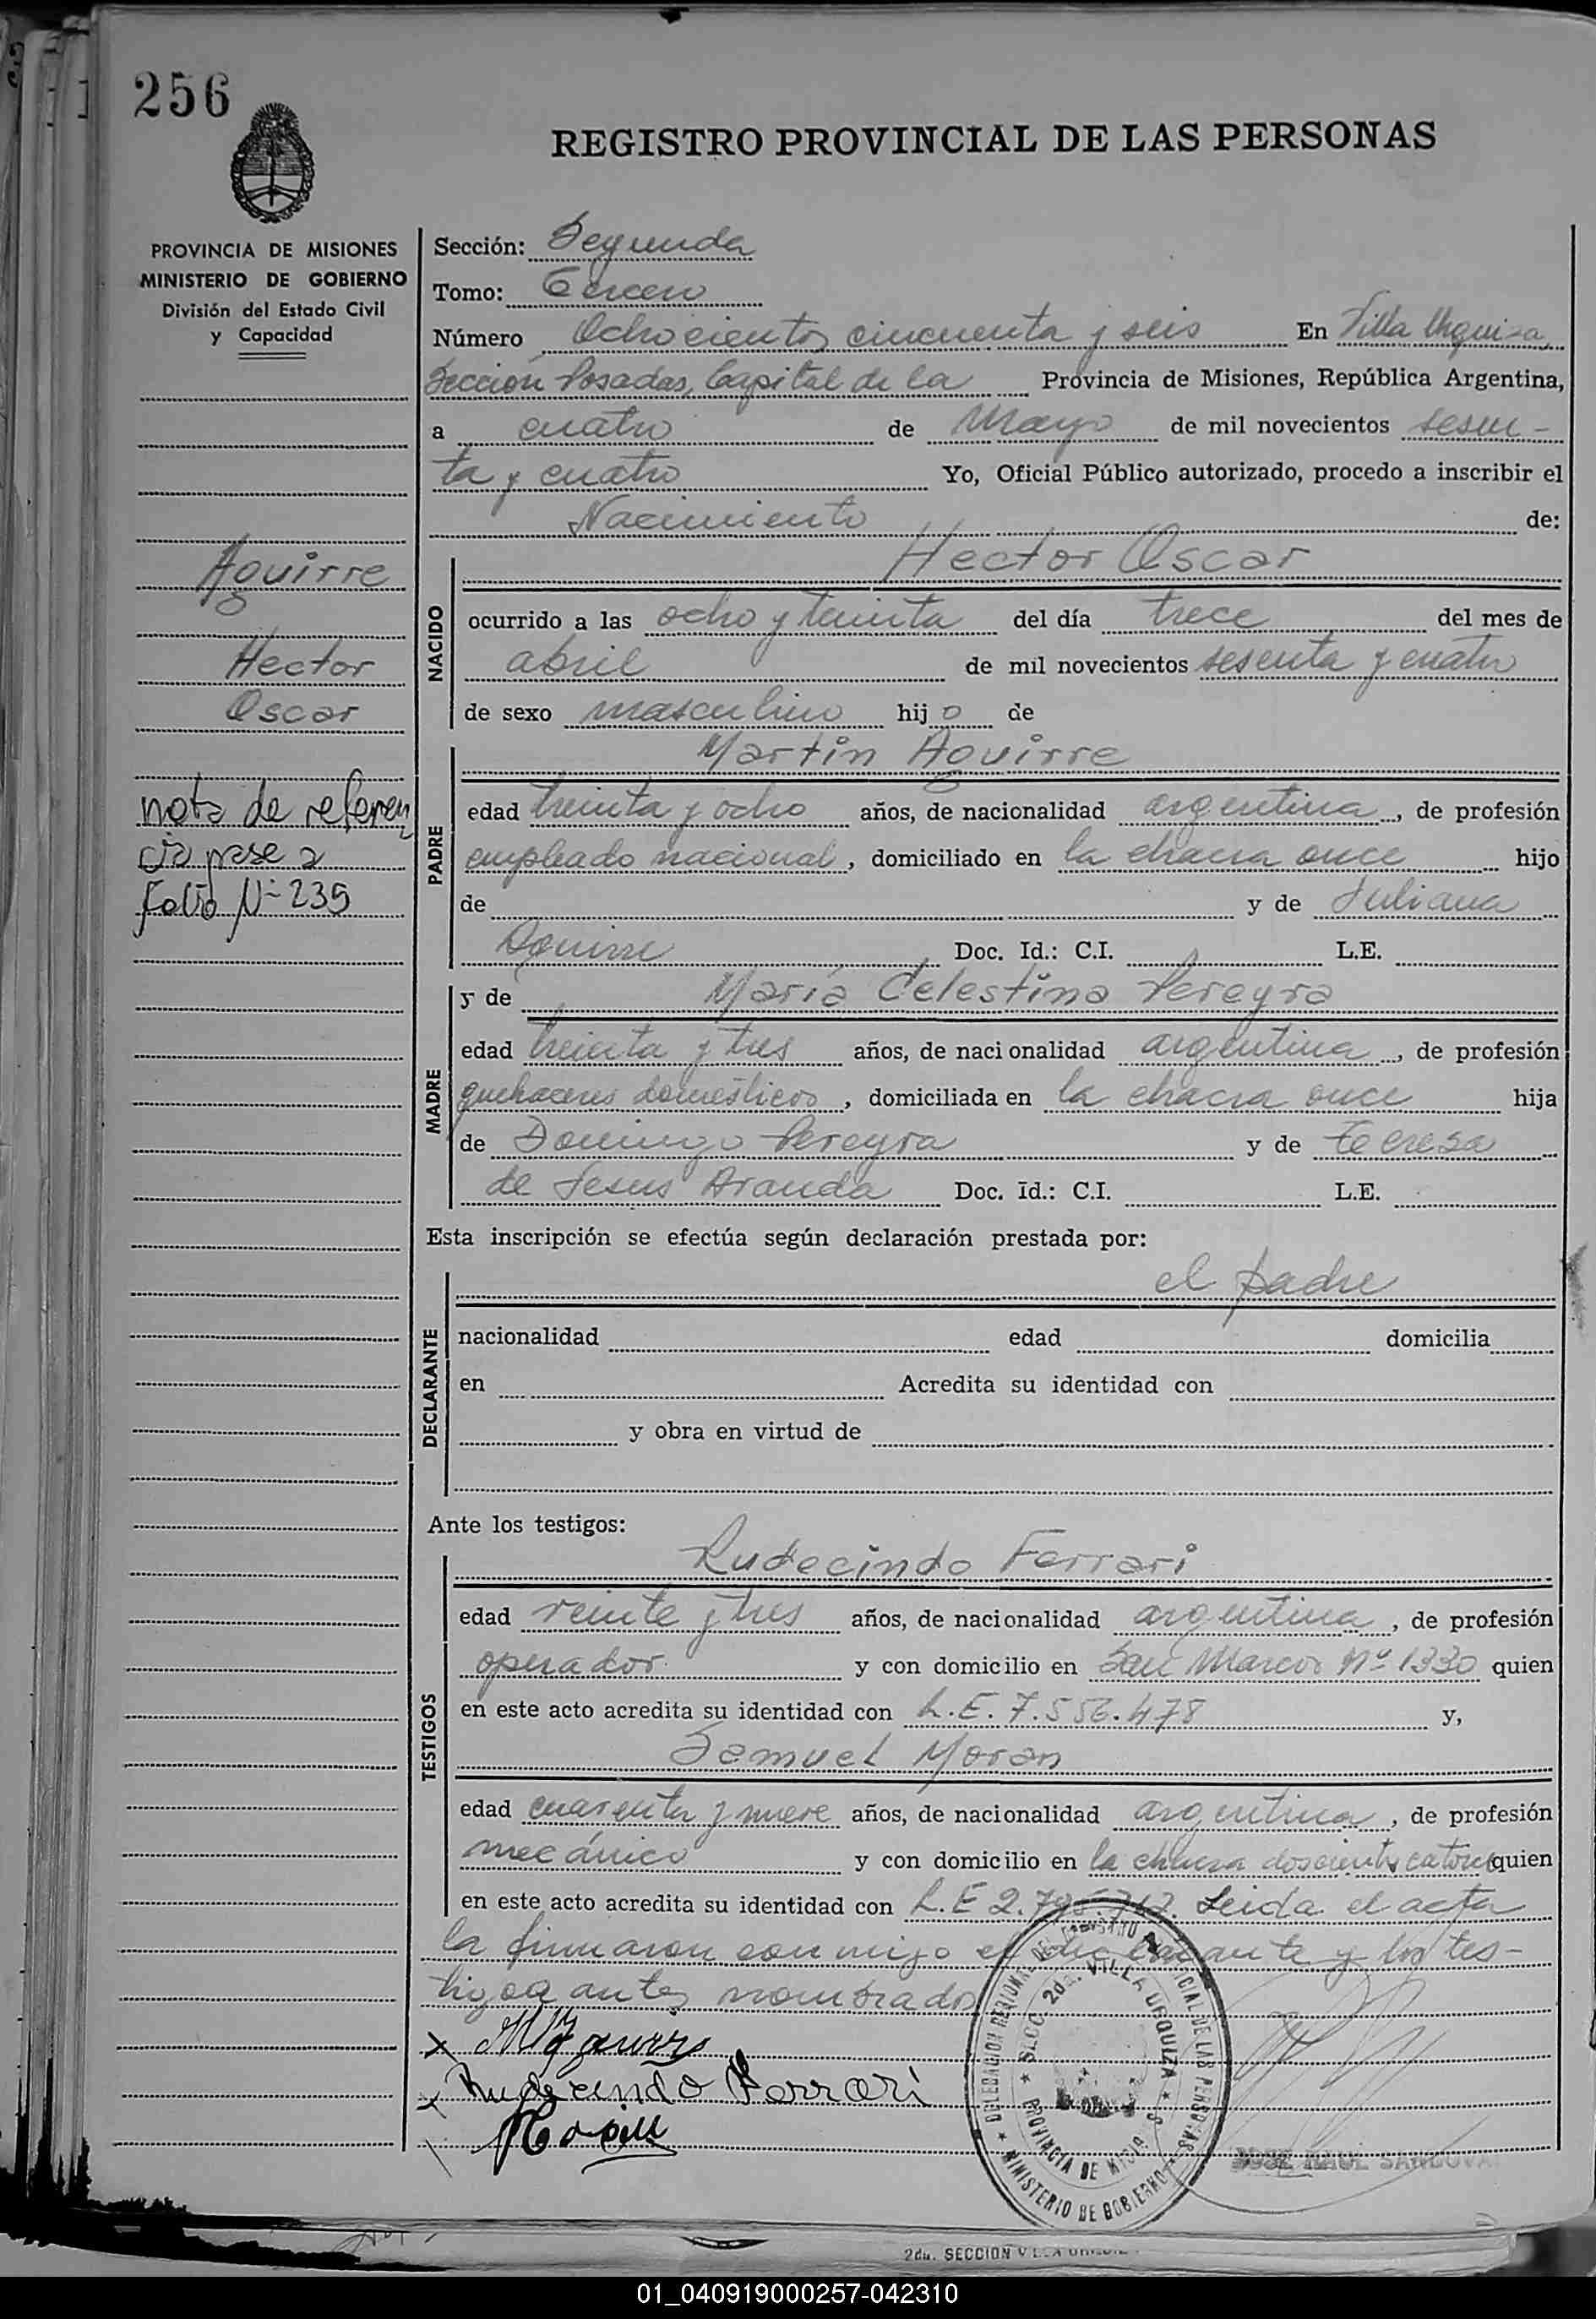 256
REGISTRO PROVINCIAL DE LAS PERSONAS
PROVINCIA DE MISIONES
MINISTERIO DE GOBIERNO
División del Estado Civil
y Capacidad
Aguirre
Hector
Oscar
nota de referen
cia pase a
Folio Nº 235
Sección: Segunda
Tomo: Tercero
Número Ochocientos cincuenta y seis En Villa Urquiza,
Sección Posadas, Capital de la Provincia de Misiones, República Argentina,
a cuatro de Mayo de mil novecientos sesen-
ta y cuatro Yo, Oficial Público autorizado, procedo a inscribir el
Nacimiento de:
NACIDO
Hector Oscar
ocurrido a las ocho y treinta del día trece del mes de
abril de mil novecientos sesenta y cuatro
de sexo masculino hijo de
PADRE
Martin Aguirre
edad treinta y ocho años, de nacionalidad argentina, de profesión
empleado nacional, domiciliado en la chacra once hijo
de y de Juliana
Aguirre Doc. Id.: C.I. L.E.
MADRE
y de María Celestina Pereyra
edad treinta y tres años, de nacionalidad argentina, de profesión
quehaceres domésticos, domiciliada en la chacra once hija
de Domingo Pereyra y de Teresa
de Jesus Aranda Doc. Id.: C.I. L.E.
Esta inscripción se efectúa según declaración prestada por:
DECLARANTE
el padre
nacionalidad edad domicilia
en Acredita su identidad con
y obra en virtud de
Ante los testigos:
TESTIGOS
Rudecindo Ferrari
edad veinte y tres años, de nacionalidad argentina, de profesión
operador. y con domicilio en San Marcos Nº 1330 quien
en este acto acredita su identidad con L.E. 7.556.478 y,
Samuel Moran
edad cuarenta y nueve años, de nacionalidad argentina, de profesión
mecánico y con domicilio en la chacra doscientos catorce quien
en este acto acredita su identidad con L.E 2. Leida el acta
la firmaron conmigo el declarante y los tes-
tigos antes nombrados
x M Aguirre
x Rudecindo Ferrari
DELEGACION REGIONAL DEL REGISTRO PROVINCIAL DE LAS PERSONAS
SECC. 2da. VILLA URQUIZA
PROVINCIA DE MISIONES
MINISTERIO DE GOBIERNO
JOSE RAUL SANDOVAL
2da. SECCION VILLA URQUIZA
01_040919000257-042310